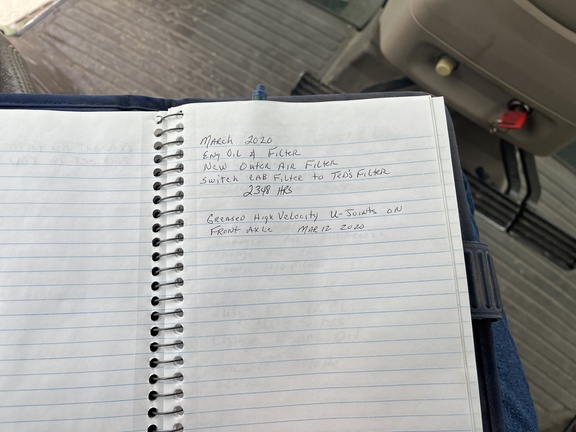 March 2020
Eng Oil & Filter
New Outer Air Filter
Switch CAB Filter to Ted's Filter
2348 HRS
Greased High Velocity U-Joints on
Front Axle Mar 12 2020